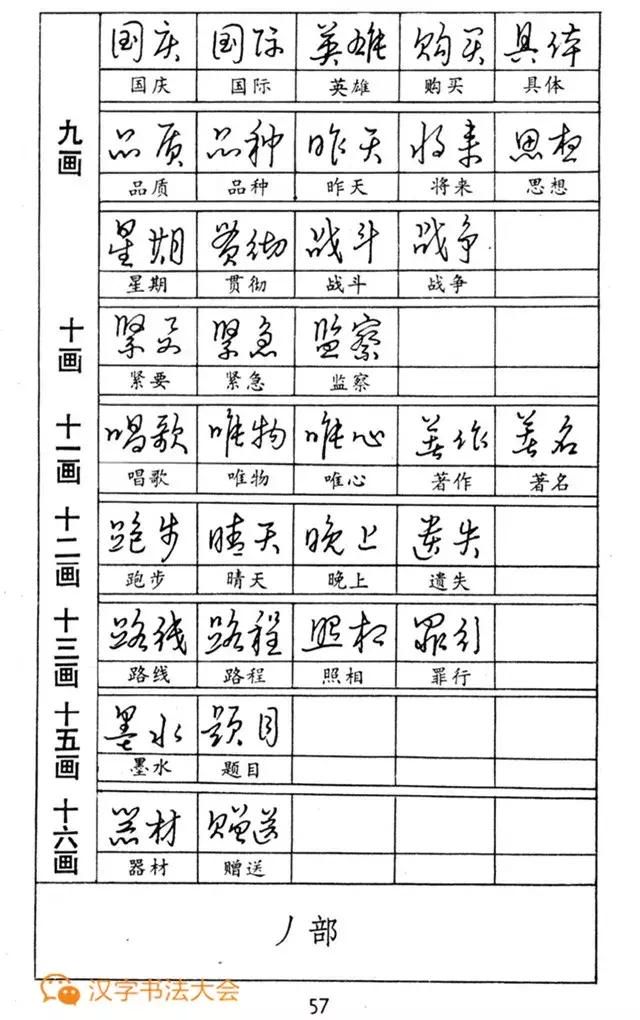 国庆 国际 英雄 购买 具体
国庆 国际 英雄 购买 具体
九画
品质 品种 昨天 将来 思想
品质 品种 昨天 将来 思想
星期 贯彻 战斗 战争
星期 贯彻 战斗 战争
十画
紧要 紧急 监察
紧要 紧急 监察
十一画
唱歌 唯物 唯心 著作 著名
唱歌 唯物 唯心 著作 著名
十二画
跑步 晴天 晚上 遗失
跑步 晴天 晚上 遗失
十三画
路线 路程 照相 罪行
路线 路程 照相 罪行
十五画
墨水 题目
墨水 题目
十六画
器材 赠送
器材 赠送
丿部
汉字书法大会
57